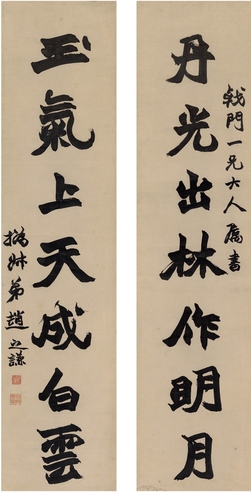 丹光出林作明月
戟門一兄大人屬書
玉氣上天成白雲
撝叔弟趙之謙